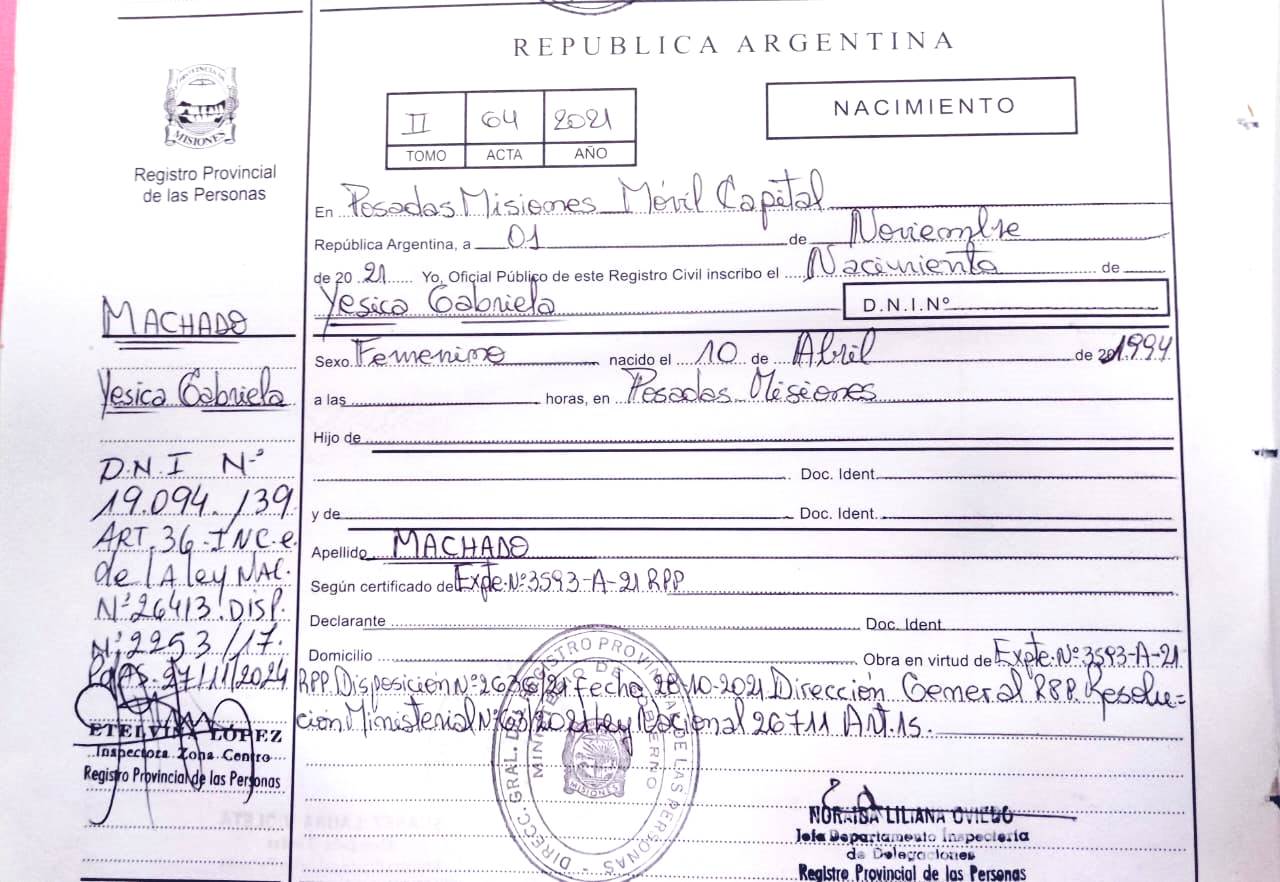 REPUBLICA ARGENTINA
PROVINCIA DE
MISIONES
Registro Provincial
de las Personas
II 64 2021
TOMO ACTA AÑO
NACIMIENTO
En Posadas Misiones Móvil Capital
República Argentina, a 01 de Noviembre
de 20 21 Yo, Oficial Público de este Registro Civil inscribo el Nacimiento de
Yesica Gabriela D.N.I.Nº
Sexo Femenino nacido el 10 de Abril de 20 1994
a las horas, en Posadas Misiones
Hijo de
Doc. Ident.
y de Doc. Ident.
Apellido MACHADO
Según certificado de Expte.Nº3593-A-21 RPP
Declarante Doc. Ident.
Domicilio Obra en virtud de Expte.Nº.3593-A-21
RPP. Disposición Nº2636/21 Fecha 28-10-2021 Dirección General RPP. Resolu-
ción Ministerial Nº63/2021 Ley Nacional 26711 Art.15.
MACHADO
Yesica Gabriela
D.N.I Nº
19.094.139
ART.36-INC.e
de lA ley NAC.
Nº26413.DISP.
Nº2253/17.
PdAS.27/11/2024
ETELVINA LOPEZ
Inspectora Zona Centro
Registro Provincial de las Personas
DIRECC. GRAL. DE REGISTRO PROVINCIAL DE LAS PERSONAS
MINISTERIO DE GOBIERNO
MISIONES
NORAIDA LILIANA OVIEDO
Jefa Departamento Inspectoria
de Delegaciones
Registro Provincial de las Personas